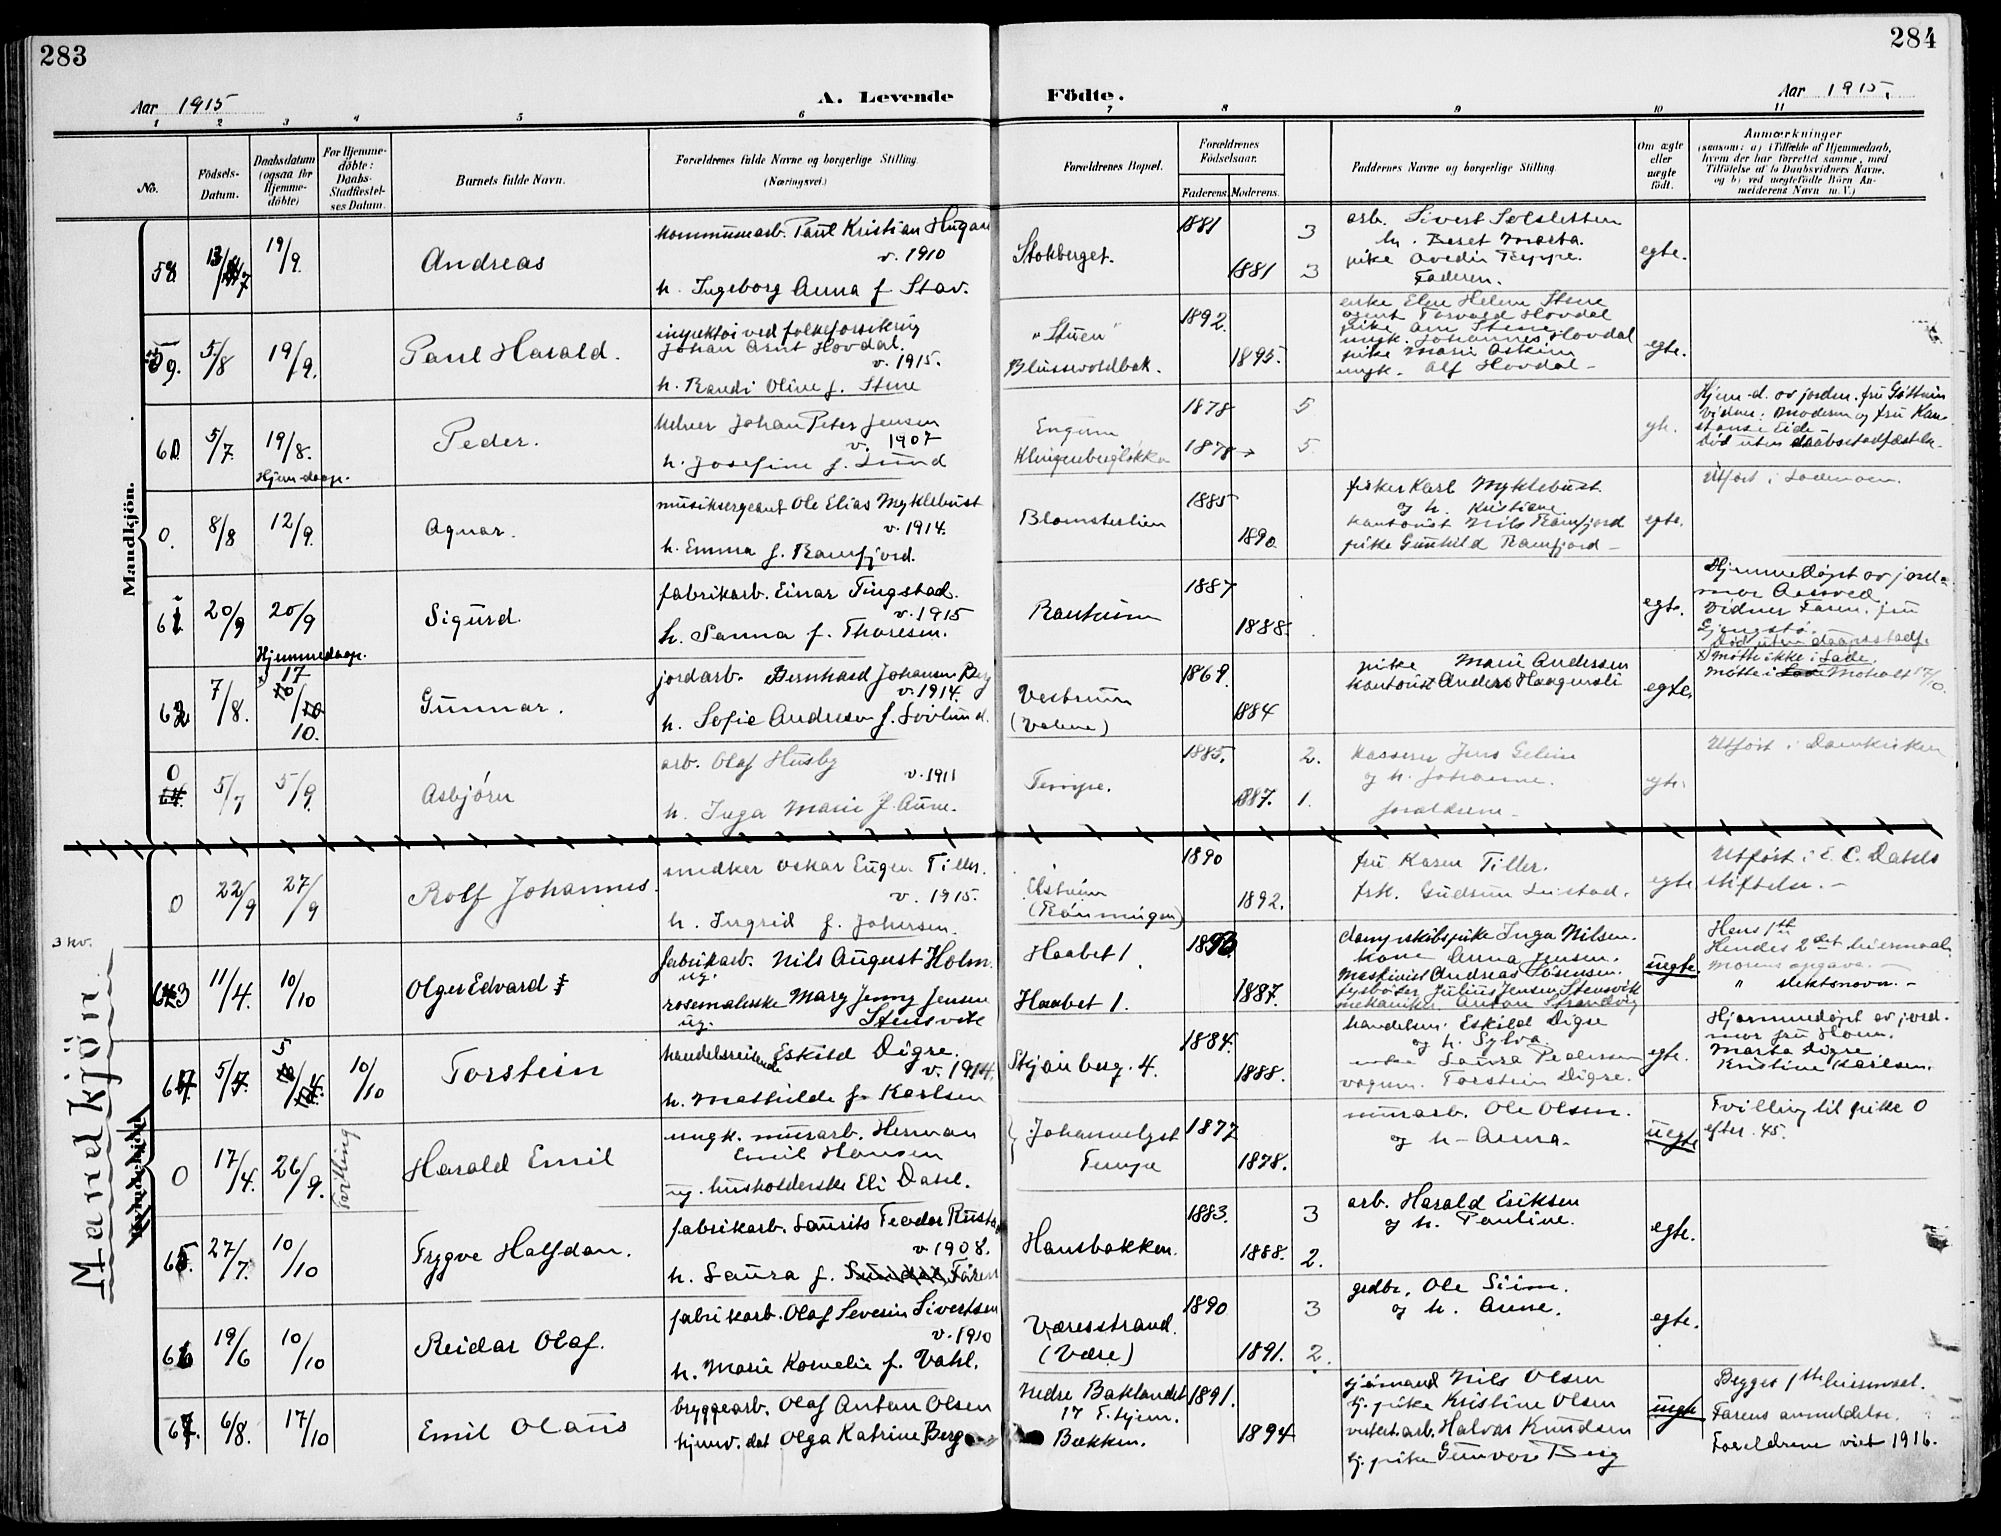 283
284
Aar 1915
A. Levende
Födte.
Aar 1915.
1 2 3 4 5 6 7 8 9 10 11
No.
Födsels-Datum.
Daabsdatum (ogsaa for Hjemme-döbte)
For Hjemme-döbte: Daabs-Stadfæstelses Datum.
Barnets fulde Navn.
Forældrenes fulde Navne og borgerlige Stilling. (Næringsvei.)
Forældrenes Bopæl.
Forældrenes Födselsaar.
Faderens. Moderens.
Faddernes Navne og borgerlige Stilling.
Om ægte eller uægte födt.
Anmærkninger
(saasom: a) i Tilfælde af Hjemmedaab,
hvem der har forrettet samme, med
Tilföielse af to Daabsvidners Navne,
og b) ved uægtefödte Börn An-
melderens Navn m. V.)
Mandkjön.
58 19/9. Andreas
kommunearb. Paul Kristian Hugaas
v. 1910
h. Ingeborg Anna f. Stav.
Stokberget. 1881 1881 3 3
arb. Sivert
h. Beret Marta.
pike
Faderen.
egte.
59. 5/8 19/9. Paul Harald.
inspektør ved folkeforsikring
Johan Arnt Hovdal.
v. 1915.
h. Randi Oline f. Stene
"Stuen"
Blussevoldbak. 1892. 1895.
enke Elen Helene Stene
agent Torvald Hovdal
pike Stene
ungk. Johannes Hovdal
pike Marie
ungk. Alf Hovdal
egte.
60 5/7. 19/8. Hjem-daap. Peder.
Johan Peter Jensen
v. 1907
h. Josefine f. Lund
Engum
Klingenbergløkka 1878 1878 5 5.
Hjem-d. av jordm. fru
vidner: Moderen og fru
Eide
Død uten daabsstadfæstelse
0. 8/8 12/9. Agnar.
musiksergeant Ole Elias Myklebust
v. 1914.
h. Emma f. Ramfjord.
Blomsterlien 1885 1890.
fisker Karl Myklebust.
og h. Kristiane.
kontorist Nils Ramfjord
pike Gunhild Ramfjord
egte.
Utført i Lademoen.
61 20/9 20/9 Hjemmedaap. Sigurd.
fabrikarb. Einar Tingstad.
v. 1915
h. Sanna f. Thoresen.
Ranheim 1887 1888.
egte.
Hjemmedøpt av jord-
mor Aasved.
Vidner Faren, fru
Død uten daapsstadf.
62 7/8. 17/10. Gunnar.
jordarb. Bernhard Johansen Berg
v. 1914.
h. Sofie Andrea f.
Vestrum
1869. 1884
pike Marie Andersen
kontorist Anders Haagensli
egte.
x) møtte ikke i Lade.
Møtte i Moholt 17/10.
0 5/7 5/9. Asbjørn
arb. Olaf Husby
v. 1911
h. Inga Marie f. Aune.
Tempe. 1885. 1887. 2. 1.
kasserer Jens
og h. Johanne.
forældrene
egte.
Utført i Domkirken
0 22/9 27/9 Rolf Johannes.
snedker Oskar Eugen Tiller.
v. 1915.
h. Ingrid f. Johnsen.
(Rønningen) 1890 1892.
fru Karen Tiller.
frk. Gudrun
egte
Utført i E. C. Dahls
stiftelse.
3 kv.
Mandkjön
63 11/4. 10/10 Olger Edvard
fabrikarb. Nils August Holm.
ug.
rosemalerske Mary Jenny Jensen
ug. Stensvik
Haabet 1.
Haabet 1. 1893 1887.
dampskibspike Inga Nilsen.
kone Anna Jensen.
Maskinist Andreas Sørensen.
fyrbøter Julius Jensen Stensvik
mekaniker Anton Strandvig
uegte
Hans 1ste
Hendes 2det leiermaal
morens opgave.
" slektsnavn.
64 5/4. 10/10 Torstein
handelsreisende Eskild Digre.
v. 1914.
h. Mathilde f. Karlsen
Stjønberg. 4. 1884. 1888.
handelsm. Eskild Digre
og h. Sylva
enke Laura Pedersen
Torstein Digre.
egte.
Hjemmedøpt av jord-
mor fru Horn.
Marta Digre
Kristine Karlsen.
0 17/4. 26/9. Tvilling Harald Emil
ungk. murarb. Herman
Emil Hansen
ug. husholderske Eli Dahl.
Johannelyst
Tempe 1877 1878.
murarb. Ole Olsen.
og h. Anna
uegte
Tvilling til pike 0
efter 45.
65. 27/7. 10/10 Trygve Halfdan.
fabrikarb. Laurits Teodor
v. 1908.
h. Laura f.
Hansbakken. 1883. 1888. 3 2.
arb. Harald Eriksen
og h. Pauline.
egte.
66 19/6 10/10 Reidar Olaf.
fabrikarb. Olaf Severin Sivertsen
v. 1910
h. Marie Kornelie f. Vahl.
Væresstrand.
(Være) 1890 1891. 3 2.
grdbr. Ole Siim.
og h. Anne.
egte.
67. 6/8. 17/10 Emil Olaus
bryggearb. Olaf Anton Olsen
hjemv. dat Olga Katrine Berg
Nedre Baklandet
17 T.hjem.
Bakken. 1891. 1894
sjømand Nils Olsen
tj. pike Kristine Olsen
verkst.arb. Halvar Knudsen
tj. pike Gunvor Berg
uegte
Begges 1ste leiermaal.
Farens anmeldelse.
Forældrene viet 1916.